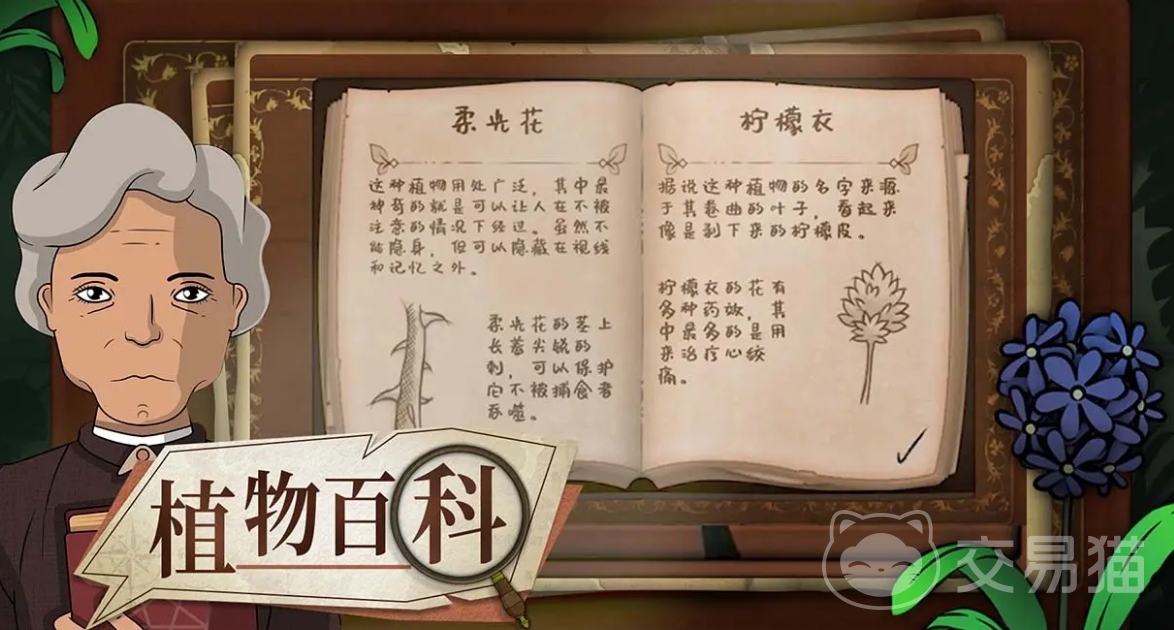 柔光花
这种植物用处广泛，其中最
神奇的就是可以让人在不被
注意的情况下经过。虽然不
能隐身，但可以隐藏在视线
和记忆之外。
柔光花的茎上
长着尖锐的
刺，可以保护
它不被捕食者
吞噬。
柠檬衣
据说这种植物的名字来源
于其卷曲的叶子，看起来
像是剥下来的柠檬皮。
柠檬衣的花有
多种药效，其
中最多的是用
来治疗心绞
痛。
植物百科
交易猫